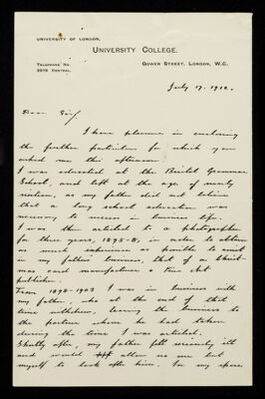 UNIVERSITY OF LONDON.
UNIVERSITY COLLEGE.
TELEPHONE NO.
GOWER STREET, LONDON, W.C.
CENTRAL.
July 17. 1912.
Dear Sir,
I have pleasure in enclosing
the further particulars for which you
asked me this afternoon.
I was educated at the Bristol Grammar
School, and left at the age of nearly
sixteen, as my father did not believe
that a long school education was
necessary to success in business life.
I was then articled to a photographer
for three years, 1895-8, in order to obtain
as much experience as possible to assist
in my father's business, that of a Christ-
mas card manufacturer & Fine Art
publisher.
From 1898-1903 I was in business with
my father, who at the end of that
time withdrew, leaving the business to
the partner whom he had taken
during the time I was articled.
Shortly after, my father fell seriously ill
and would allow no one but
myself to look after him. In my spare